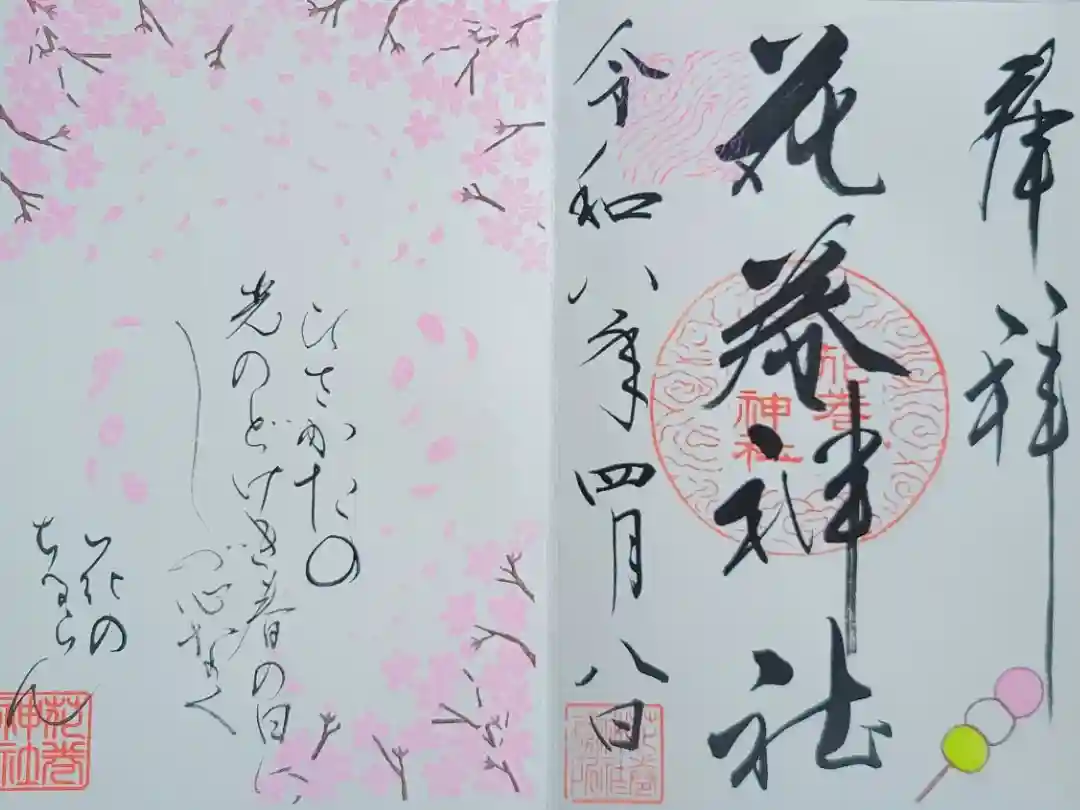 奉拝
花巻神社
花巻
神社
令和八年四月八日
ひさかたの
光のどけき春の日に
しづ心なく
花の
ちるらん
花巻
神社